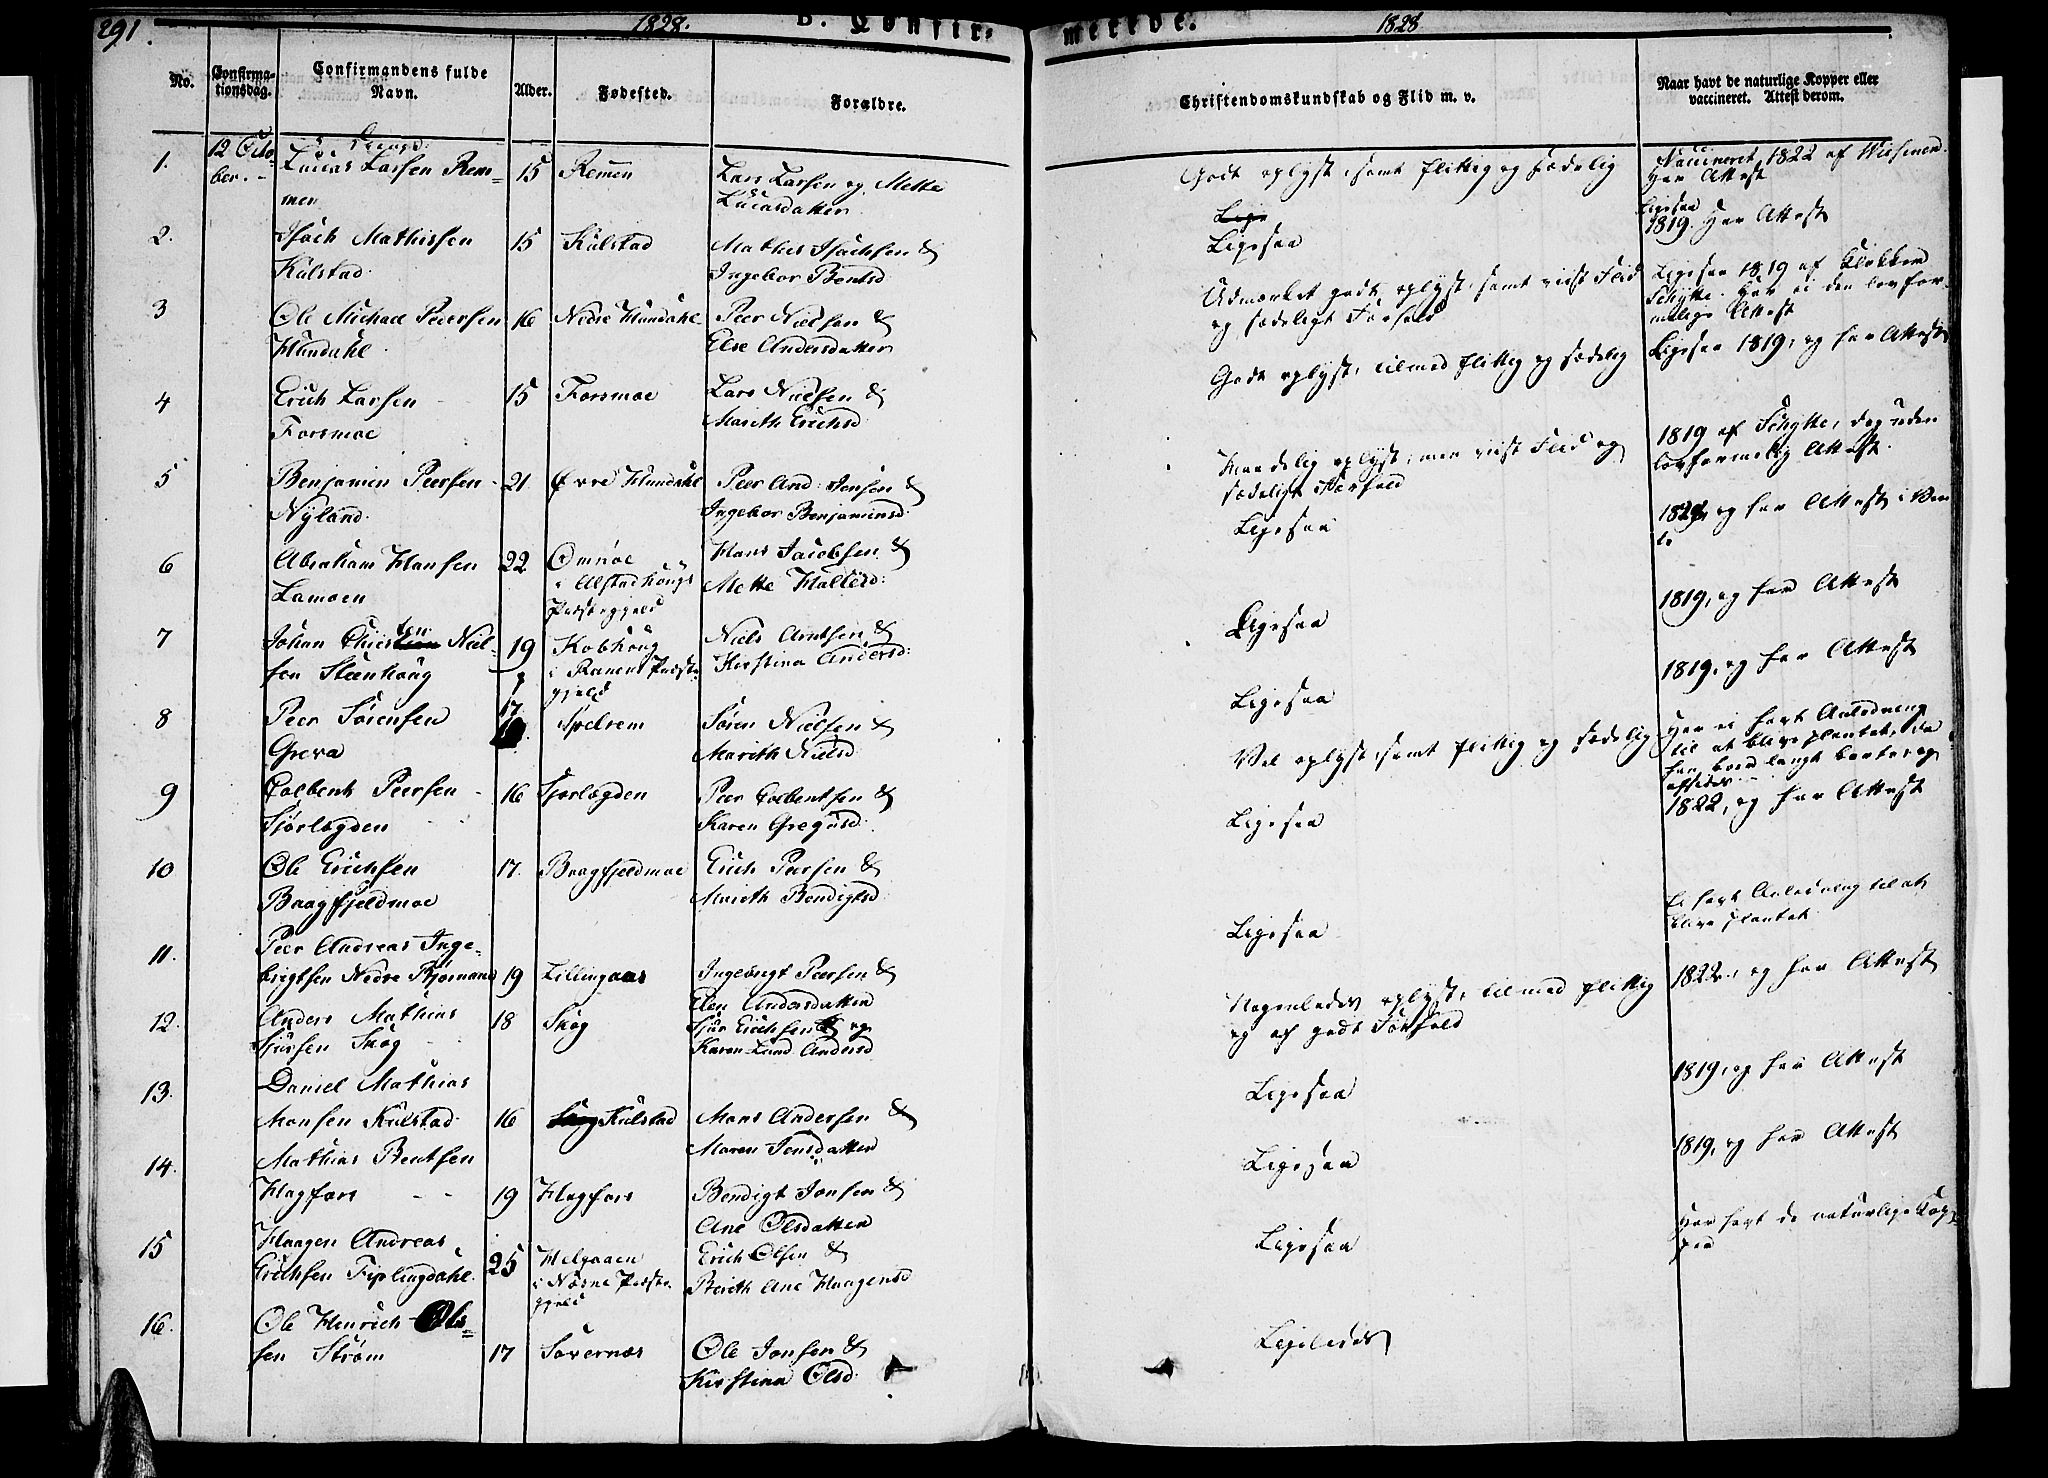 291.
1828.
B. Confir-
merede.
1828
No.
Confirma-
tionsdag.
Confirmandens fulde
Navn.
Alder.
Fødested.
Forældre.
Christendomskundskab og Flid m. v.
Naar havt de naturlige Kopper eller
vaccineret. Attest derom.
1.
12 Octo-
ber.
Lucas Larsen Rem-
men
15
Remen
Lars Larsen og Mette
Lucasdatter
Godt oplyst, samt flittig og sædelig
Vaccineret 1822 af
Har Attest
2.
Isach Mathissen
Kulstad
15
Kulstad
Mathis Isachsen &
Ingebor Bentsd
Ligesaa
Ligesaa
1819. Har Attest
3
Ole Michael Peersen
Hundahl
16
Nedre Hundahl
Peer Nielsen &
Else Andersdatter
Udmærket godt oplyst, samt viist Flid
og sædeligt Forhold
Ligesaa 1819 af Klokker
Schytte. Har ei den lovfor-
melige Attest
4
Erich Larsen
Forsmoe
15
Forsmoe
Lars Nielsen &
Marith Erichsd
Godt oplyst, tilmed flittig og sædelig
Ligesaa 1819, og har Attest
5
Benjamin Peersen
Nyland
21
Øvre Hundahl
Peer And: Jensen &
Ingebor Benjaminsd
Maadelig oplyst, men viist Flid og
sædeligt Forhold
1819 af Schytte, dog uden
lovformelig Attest.
6
Abraham Hansen
Lamoen
22
Omnøe
i Alstadhougs
Præstegjeld
Hans Jacobsen &
Mette Hallesd:
Ligesaa
og har Attest i Ven
7
Johan Christen Niel-
sen Steenhoug
19
Kobhoug
i Ranens Præste-
gjeld
Niels Arntsen &
Kirstina Andersd:
Ligesaa
1819, og har Attest
8
Peer Sørensen
Greva
17
Spelrem
Søren Nielsen &
Marith Nielsd
Ligesaa
1819, og har Attest
9
Colbent Peersen
Sjørlægden
16
Sjørlægden
Peer Colbentsen &
Karen Gregusd.
Vel oplyst, samt flittig og sædelig
Har ei havt Anledning
til at blive plantet, da
han boer langt borte og
afsides
10
Ole Erichsen
Baagfjeldmoe
17.
Baagfjeldmoe
Erich Persen &
Marith Bendigtsd
Ligesaa
1822, og har Attest
11.
Peer Andreas Inge-
brigtsen Nedre Bjørnaad
19
Lillingaas
Ingebrigt Peersen &
Elen Andersdatter
Ligesaa
Ei havt Anledning til at
blive plantet
12.
Anders Mathias
Sjursen Skog
18
Skog
Sjur Erichsen og
Karen Lund Andersd
Nogenledes oplyst, tilmed flittig
og af godt Forhold
1822, og har Attest
13.
Daniel Mathias
Monsen Kulstad
16
Kulstad
Mons Andersen &
Maren Jensdatter
Ligesaa
1819, og har Attest
14.
Mathias Bentsen
Hagfors
19
Hagfors
Bendigt Jonsen &
Ane Olsdatter
Ligesaa
1819, og har Attest
15
Haagen Andreas
Erichsen Fiplingdahl
25
Melgaaen
i Næsne Præste-
gjeld
Erich Olsen &
Berith Ane Haagensd
Ligesaa
Har havt de naturlige Kop-
per
16.
Ole Henrich Ole-
sen Strøm
17
Søvernæs
Ole Jonsen &
Kirstina Olsd
Ligeledes